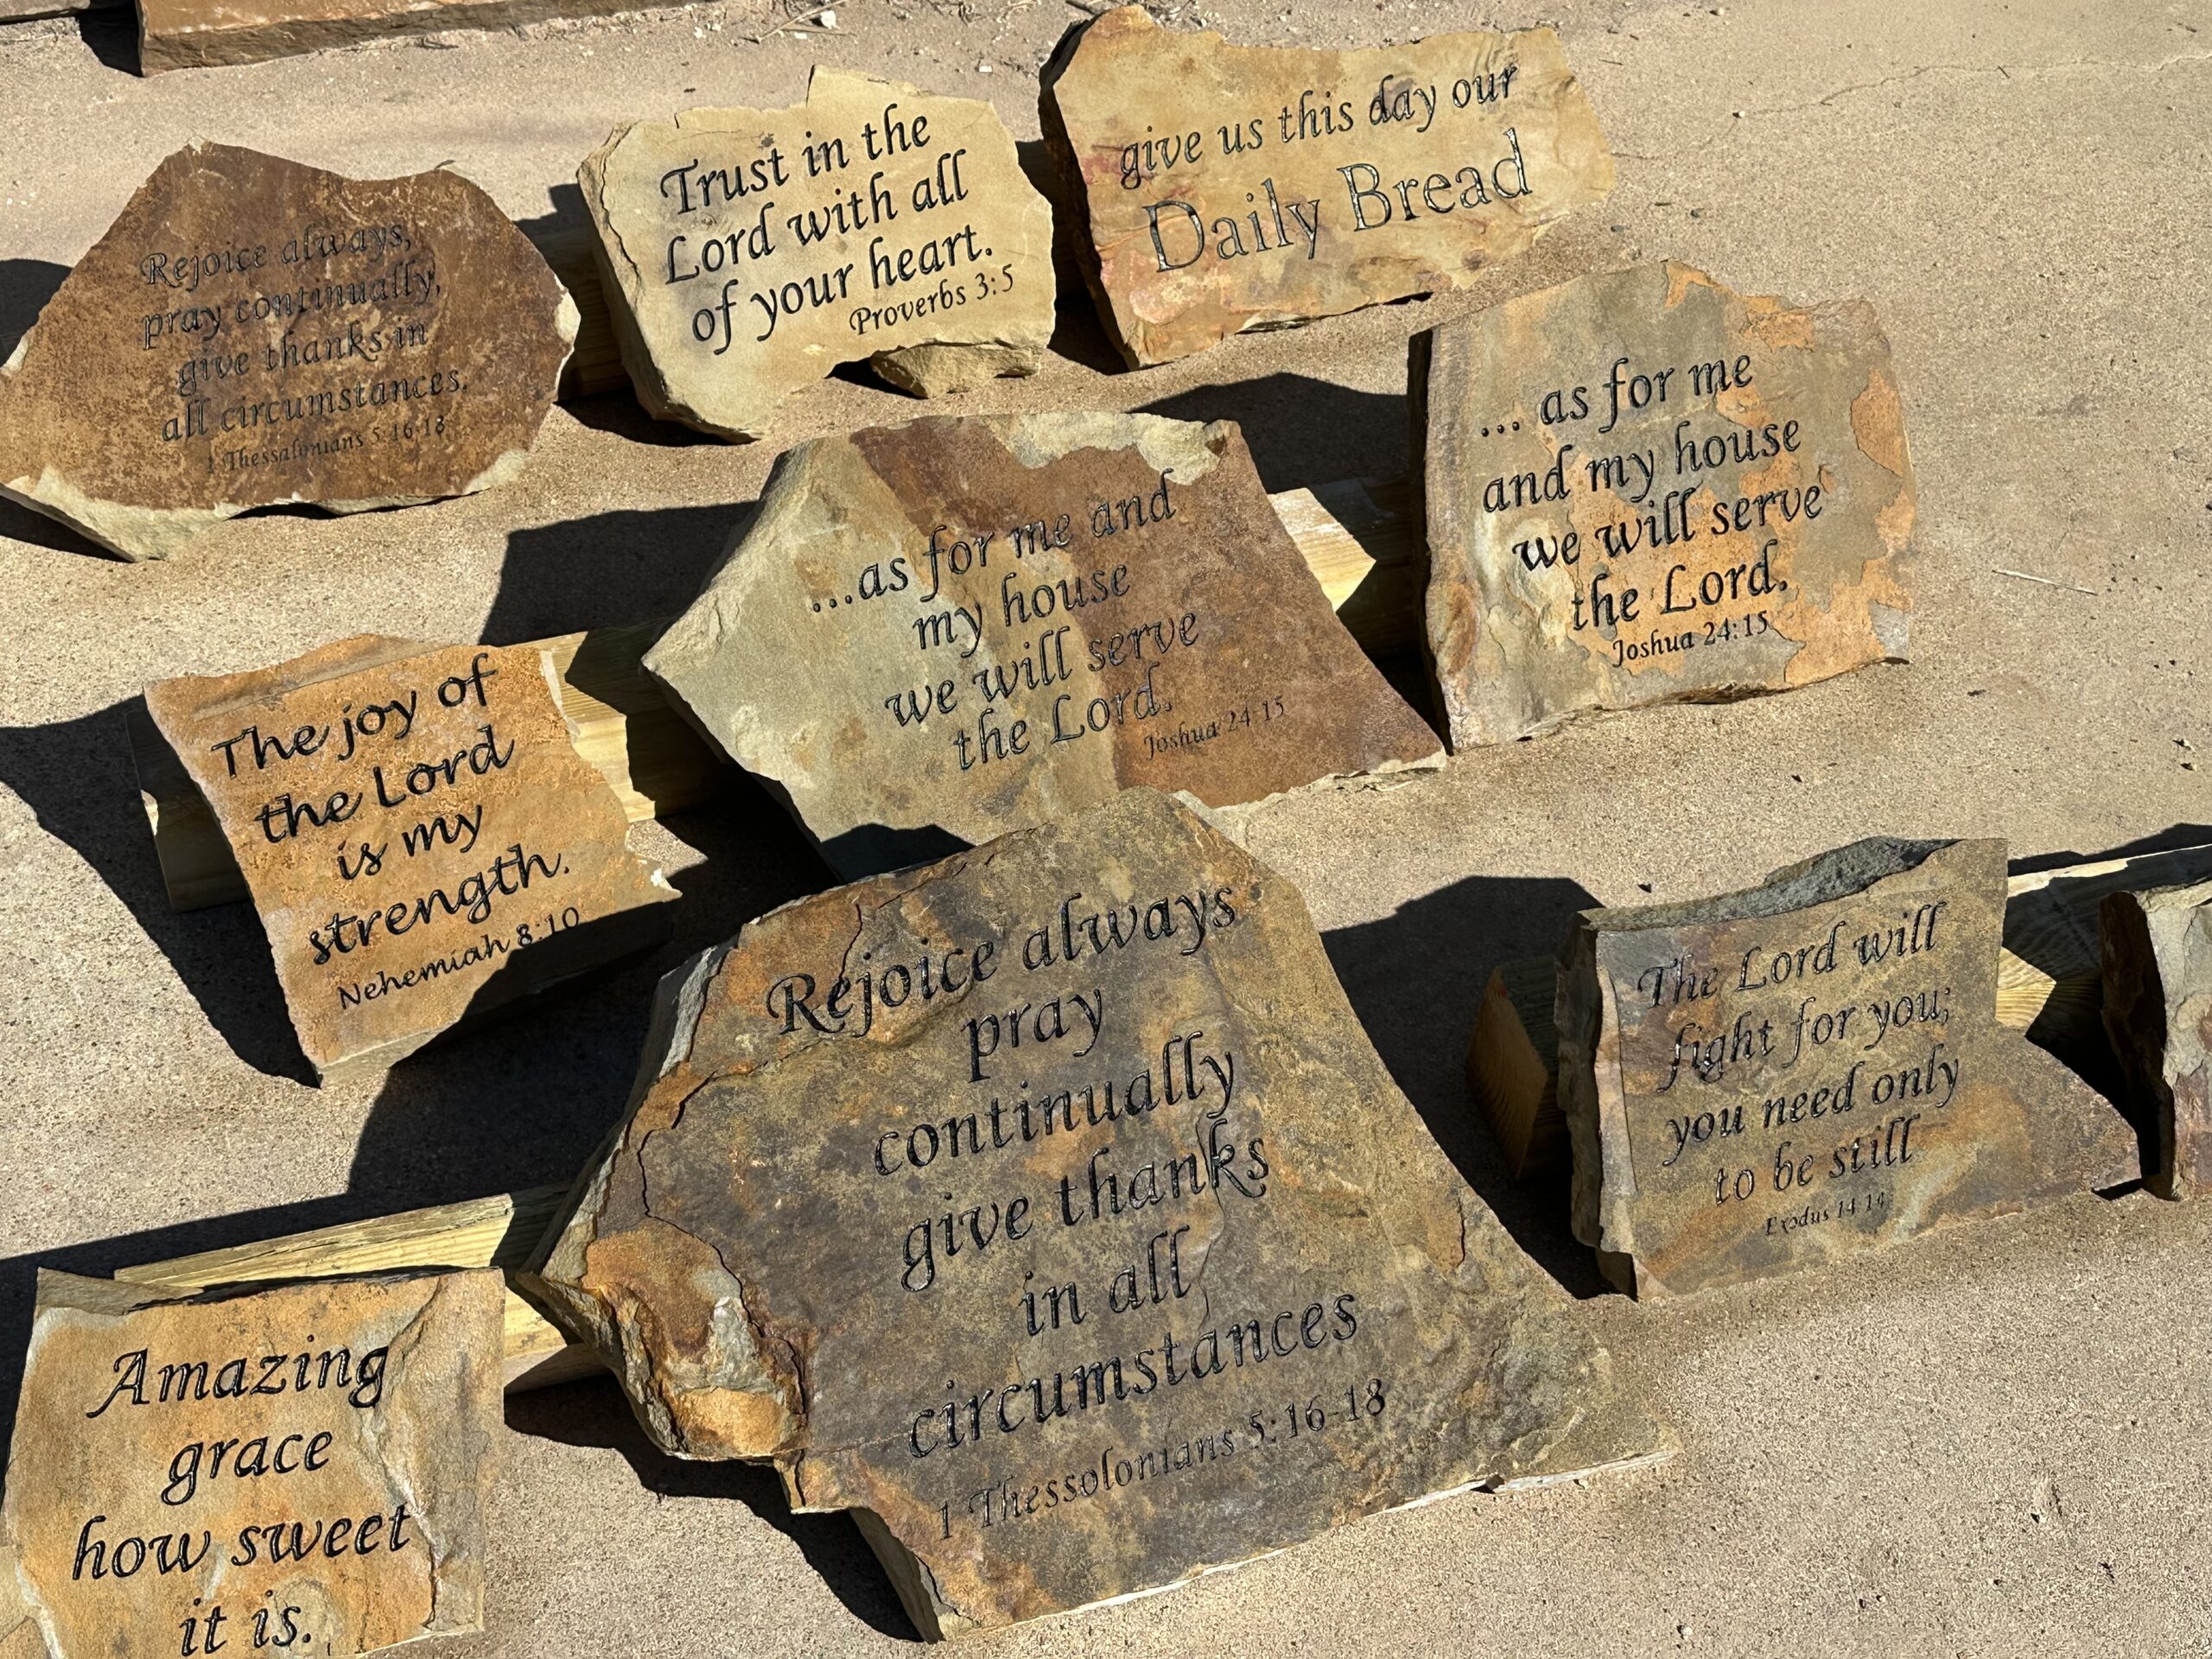 Rejoice always,
pray continually,
give thanks in
all circumstances.
1 Thessalonians 5:16-18
Trust in the
Lord with all
of your heart.
Proverbs 3:5
give us this day our
Daily Bread
...as for me and
my house
we will serve
the Lord.
Joshua 24:15
... as for me
and my house
we will serve
the Lord.
Joshua 24:15
The joy of
the Lord
is my
strength.
Nehemiah 8:10
Rejoice always
pray
continually
give thanks
in all
circumstances
1 Thessolonians 5:16-18
The Lord will
fight for you;
you need only
to be still
Exodus 14:14
Amazing
grace
how sweet
it is.